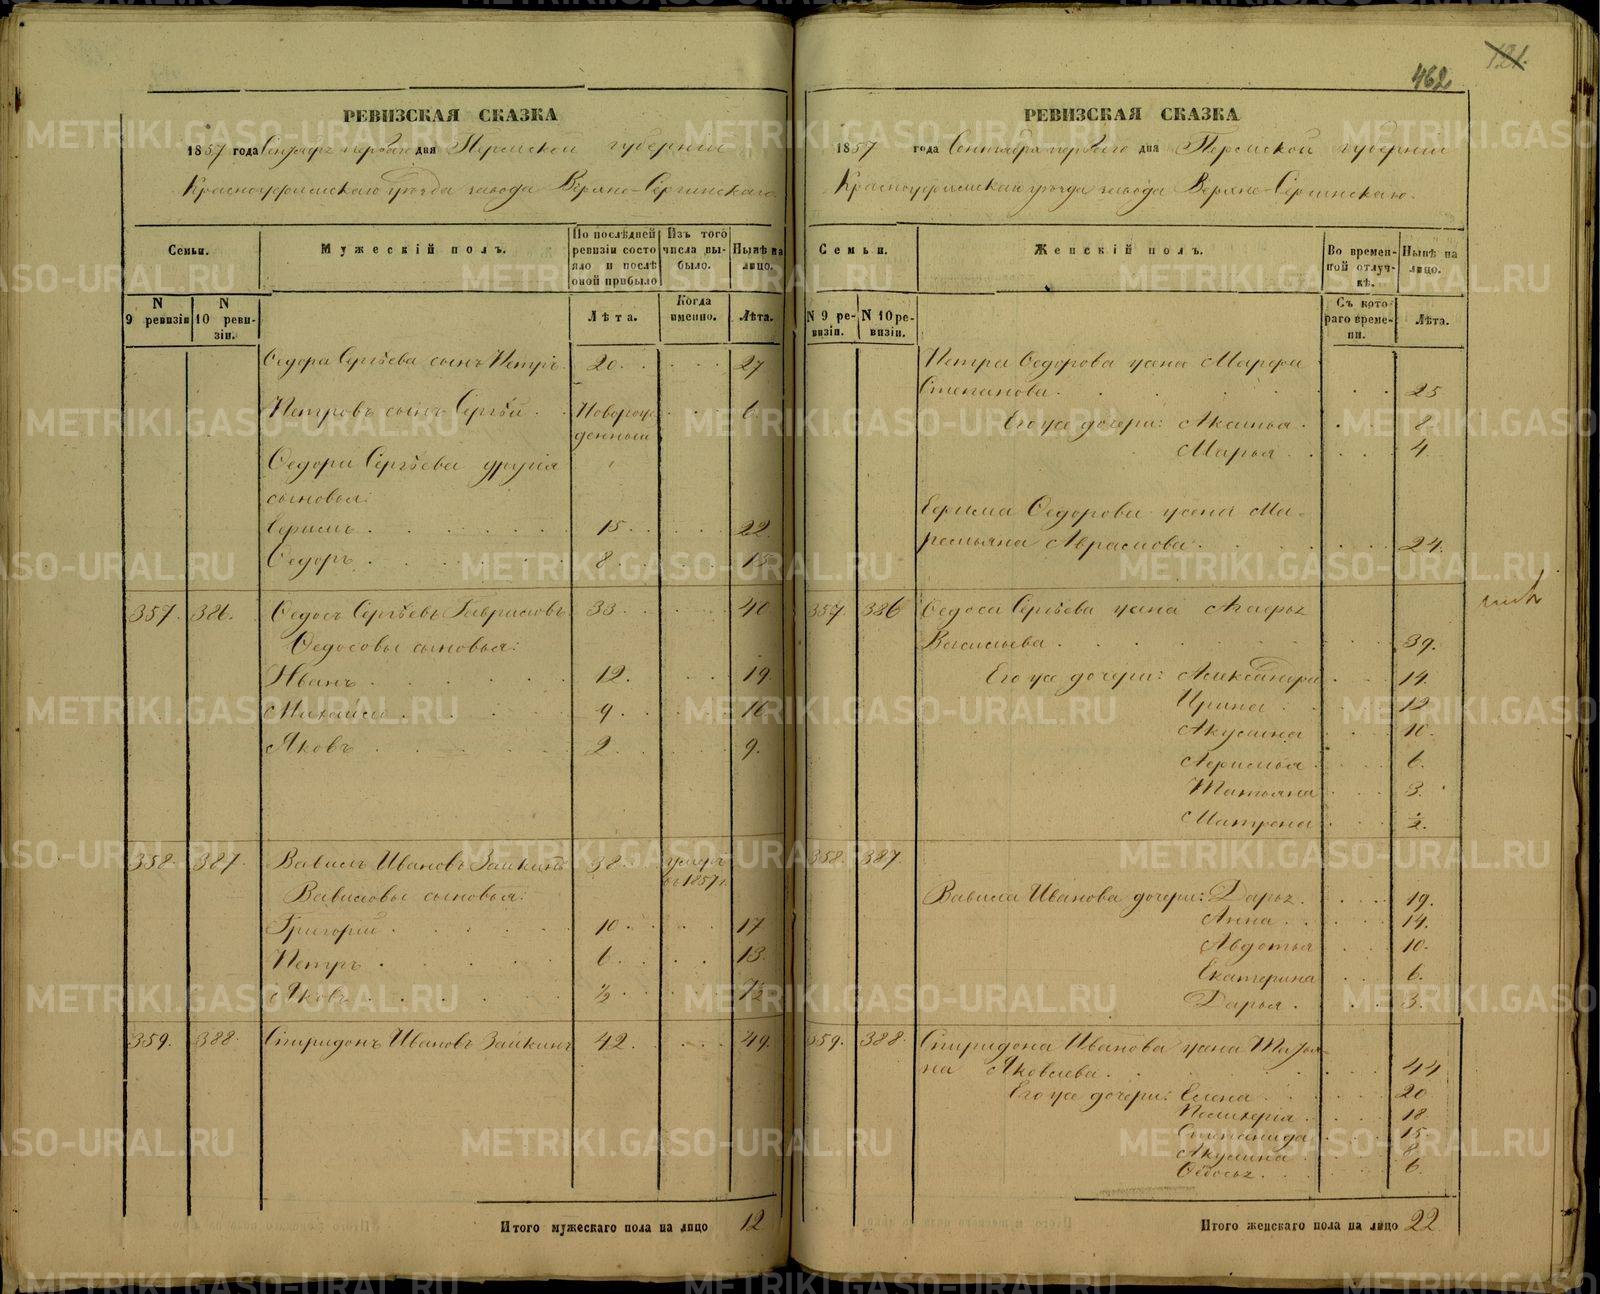 РЕВИЗСКАЯ СКАЗКА
1857 года Сентября первого дня Пермской губерніи
Красноуфимскаго уѣзда завода Верхне-Сергинскаго.
Семьи.
Мужескій полъ.
По послѣдней ревизіи состояло и послѣ оной прибыло
Изъ того числа выбыло.
Нынѣ на лицо.
N 9 ревизіи
N 10 ревизіи.
Лѣта.
Когда именно.
Лѣта.
Ѳедора Сергѣева сынъ Петръ 20. 27
Петровъ сынъ Сергѣй. Новорожденный 6.
Ѳедора Сергѣева другія
сыновья:
Ефимъ 15. 22.
Ѳедоръ 8. 15
357. 386. Ѳедосъ Сергѣевъ Гавриловъ 33. 40
Ѳедосовы сыновья:
Иванъ 12. 19.
Михаилъ 9. 16
Яковъ 2. 9.
358. 387. Вавилъ Ивановъ Заикинъ 38. умеръ въ 1857 г.
Вавиловы сыновья:
Григорій 10. 17
Петръ 6. 13.
Яковъ ½ 7½
359. 388. Спиридонъ Ивановъ Заикинъ 42. 49.
Итого мужескаго пола на лицо 12
121.
462
РЕВИЗСКАЯ СКАЗКА
1857 года Сентября первого дня Пермской губерніи
Красноуфимскаго уѣзда завода Верхне-Сергинскаго.
Семьи.
Женскій полъ.
Во временной отлучкѣ.
Нынѣ на лицо.
N 9 ревизіи.
N 10 ревизіи.
Съ котораго времени.
Лѣта.
Петра Ѳедорова жена Марфа
Степанова. 25
Его же дочери: Аксинья. 8.
Марья 4.
Ефима Ѳедорова жена Ма-
ремьяна Аврамова. 24.
357. 386 Ѳедоса Сергѣева жена
Васильева. 39.
Его же дочери: Александра 14.
Ирина 12
Акулина 10.
Афимья 6.
Татьяна 3.
Матрена ½.
358. 387.
Вавила Иванова дочери: Дарья. 19.
Анна 14.
Авдотья 10.
Екатерина 6.
Дарья. 3.
359. 388. Спиридона Иванова жена Татья-
на Яковлева. 44
Его же дочери: Елена 20
Пелагерія 18.
Степанида 15.
Акулина 8.
Ѳедосья. 6.
Итого женскаго пола на лицо 22
METRIKI.GASO-URAL.RU